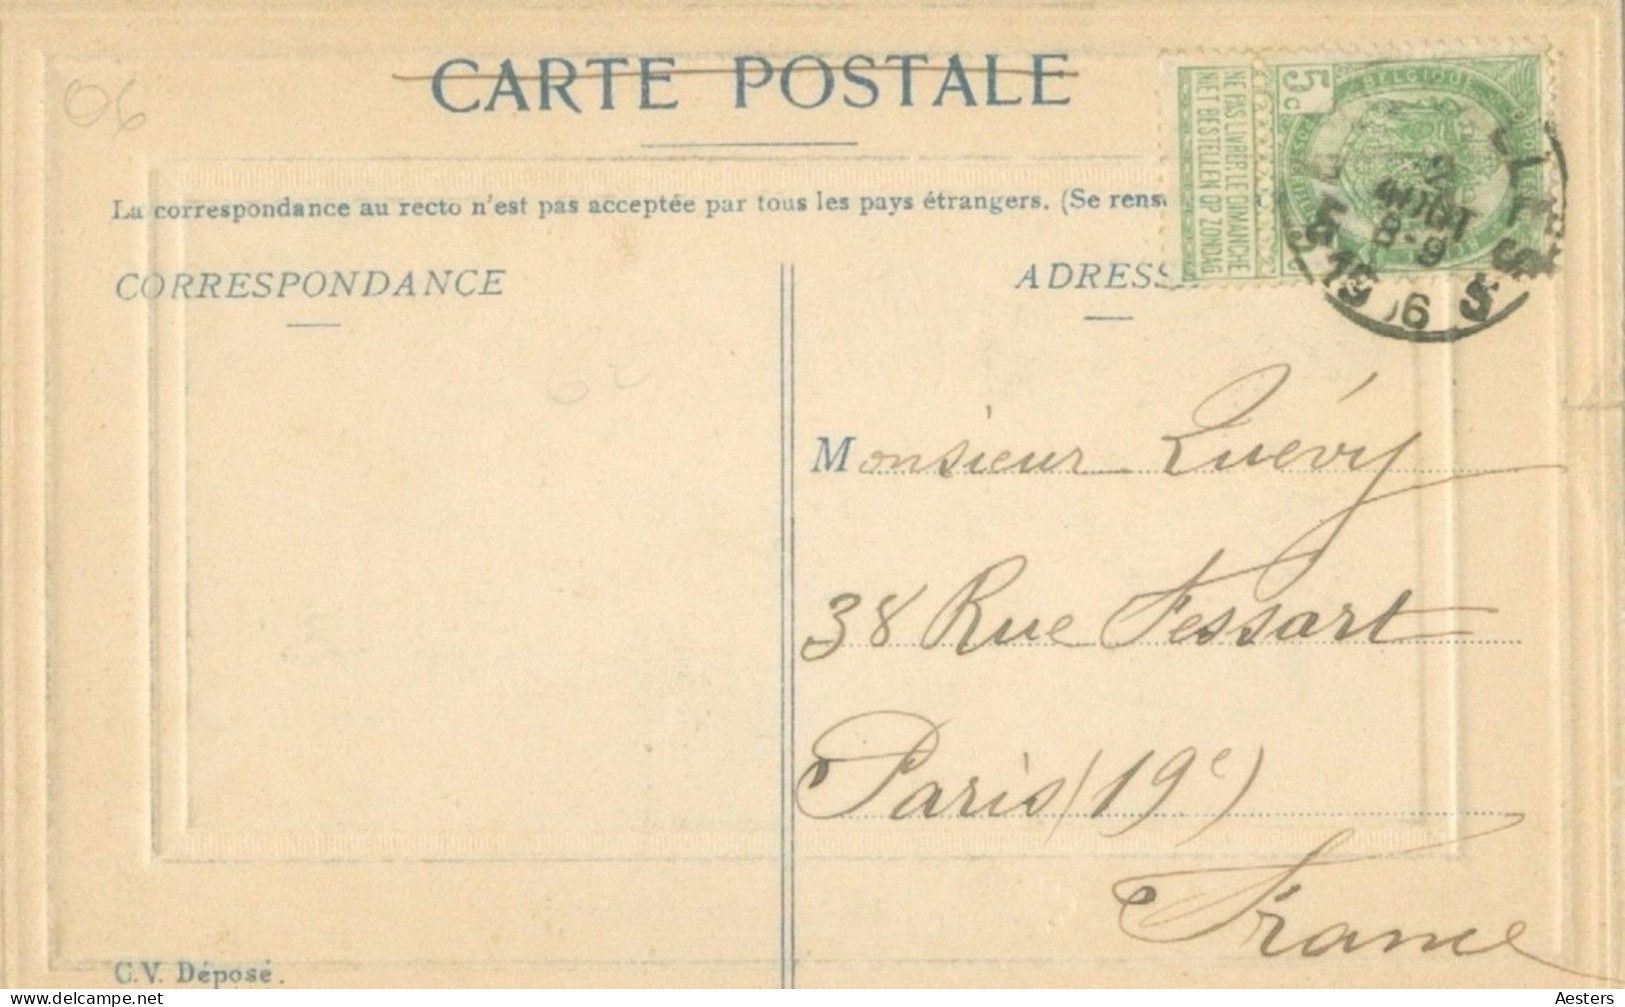 06
CARTE POSTALE
La correspondance au recto n'est pas acceptée par tous les pays étrangers. (Se rens
CORRESPONDANCE
ADRESS
NE PAS LIVRER LE DIMANCHE
NIET BESTELLEN OP ZONDAG
5c
BELGIQUE
2
AOUT
8-9
1906
Monsieur Quévy
38 Rue Fessart
Paris (19e)
France
C.V. Déposé.
Aesters